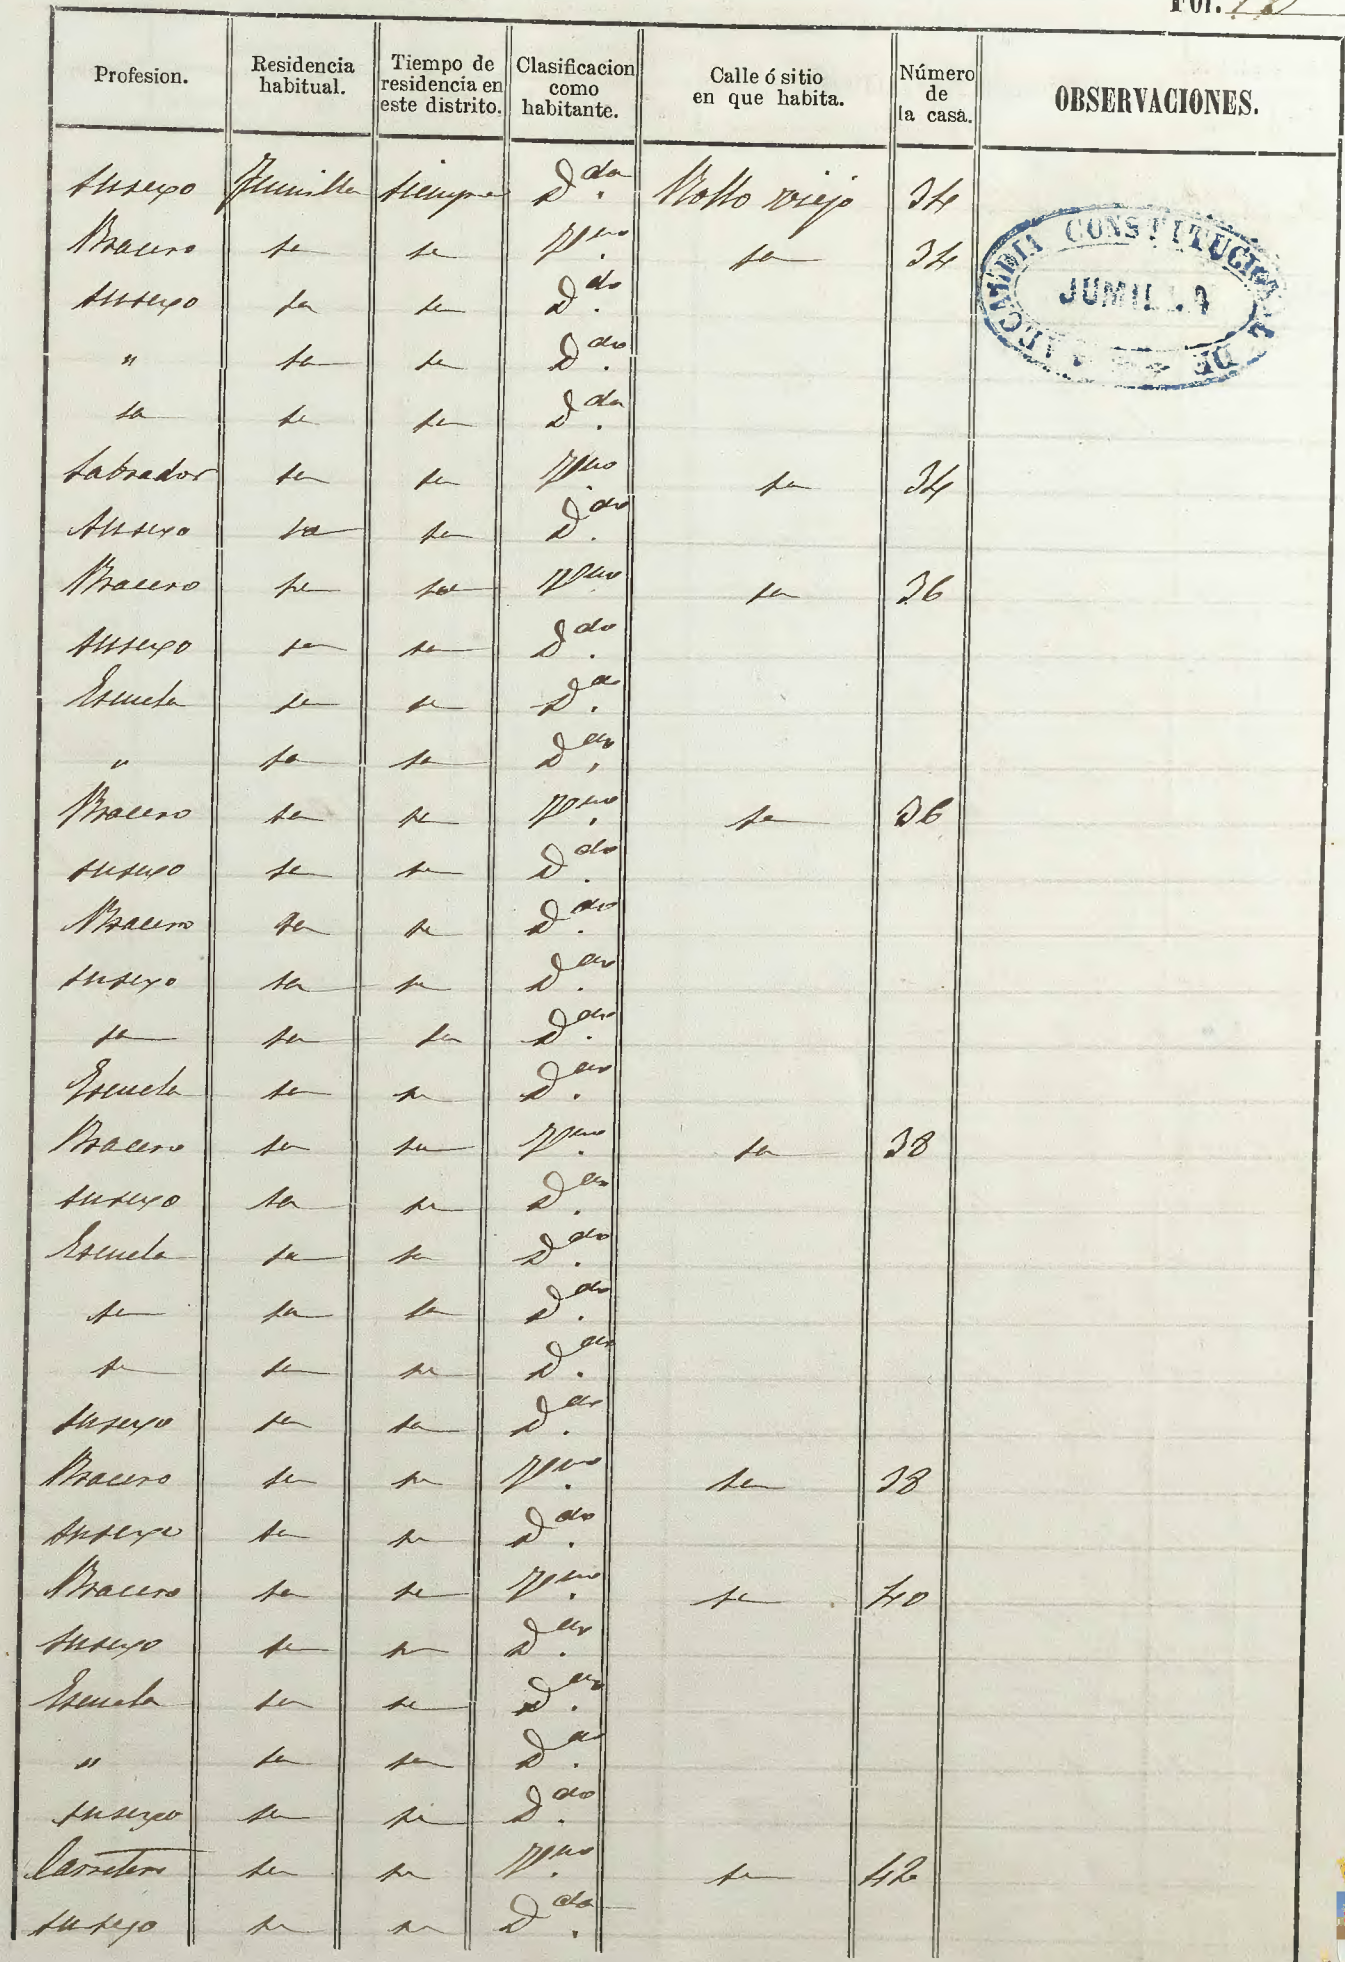 Fol.
Profesion. Residencia habitual. Tiempo de residencia en este distrito. Clasificacion como habitante. Calle ó sitio en que habita. Número de la casa. OBSERVACIONES.
su sexo Jumilla siempre Ddª. Rollo viejo 34
ALCALDIA CONSTITUCIONAL DE JUMILLA
Bracero id id Vno id 34
su sexo id id Ddo.
" id id Ddo.
id id id Ddª.
Labrador id id Vno id 34
su sexo id id Ddo.
Bracero id id Vno id 36
su sexo id id Ddo.
Escuela id id Dª.
" id id Ddo.
Bracero id id Vno. id 36
su sexo id id Ddo.
Bracero id id Ddo.
su sexo id id Ddo.
id id id Ddo.
Escuela id id Ddo.
Bracero id id Vno. id 38
su sexo id id Ddo.
Escuela id id Ddo.
id id id Ddo.
id id id Ddo.
su sexo id id Ddo.
Bracero id id Vno. id 38
su sexo id id Ddo.
Bracero id id Vno. id 40
su sexo id id Ddo.
Escuela id id Ddo.
" id id Ddo.
su sexo id id Ddo.
Carretero id id Vno. id 42
su sexo id id Ddª.